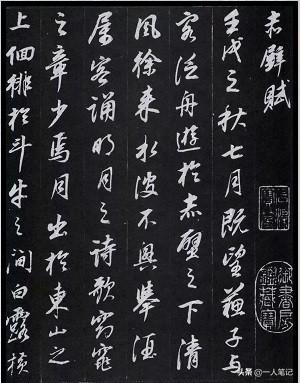 赤壁賦
壬戌之秋七月既望蘇子與
客泛舟遊於赤壁之下清
風徐來水波不興舉酒
屬客誦明月之詩歌窈窕
之章少焉月出於東山之
上徊徘於斗牛之間白露橫
御書房鑑藏寶
头条 @一人笔记